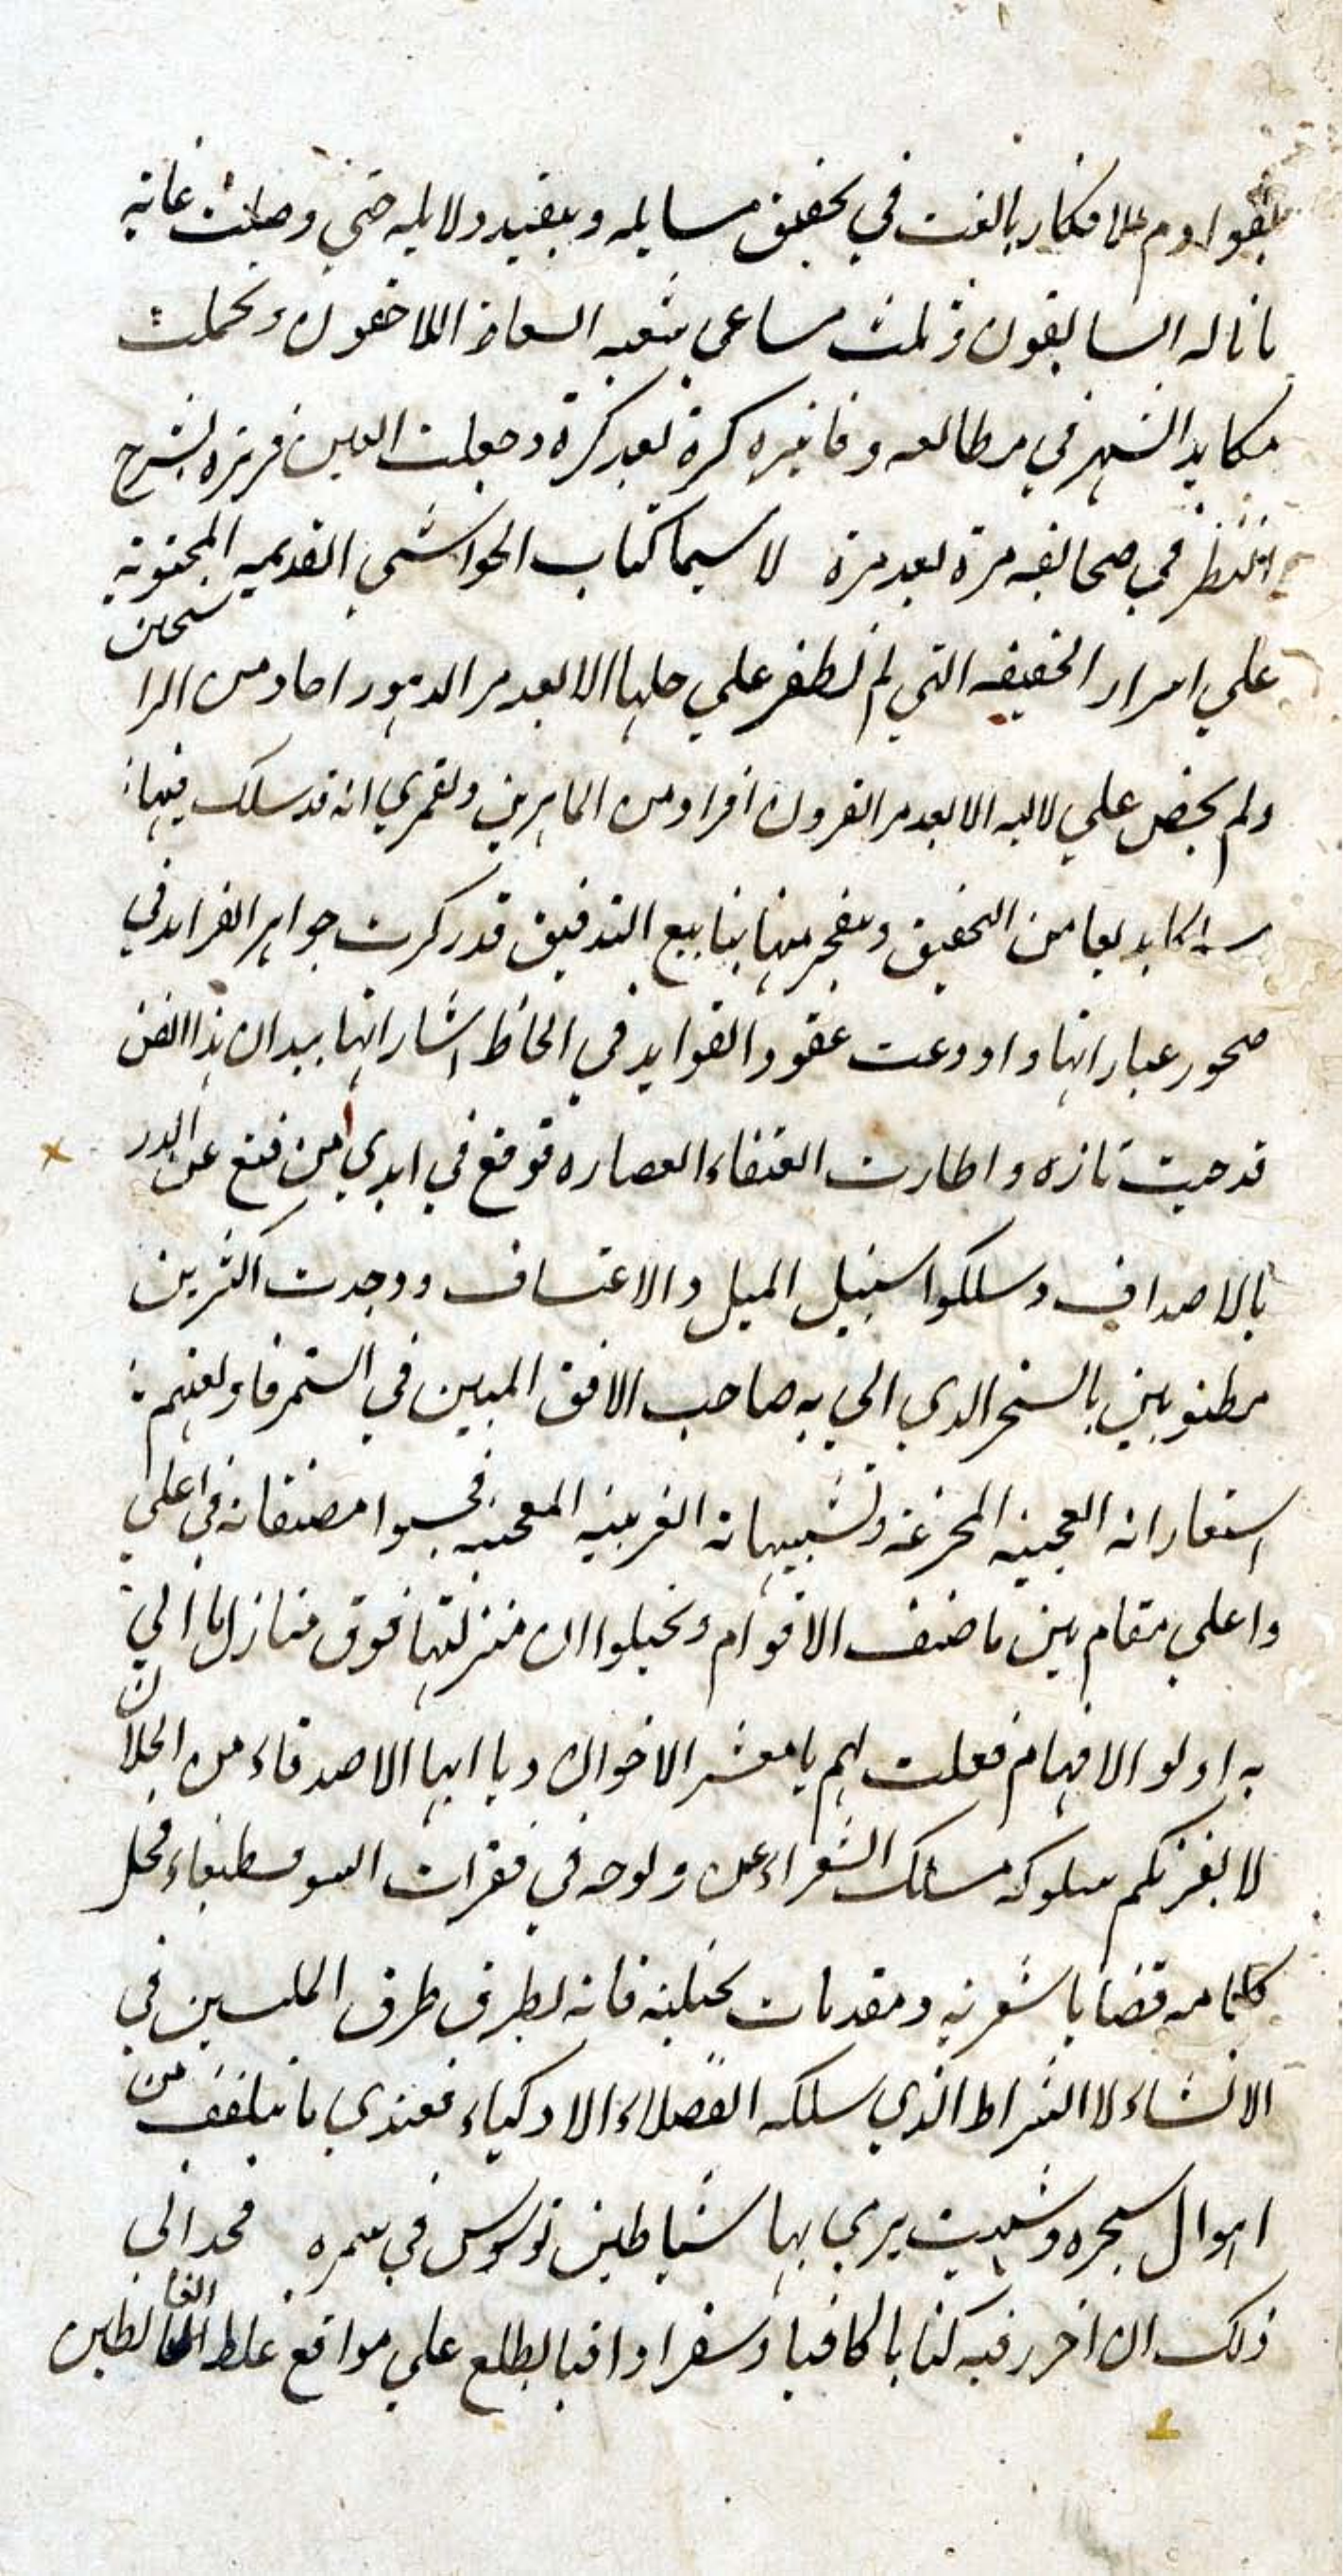 بقوادم الافكار بالغت في تحقيق مسايله وتنقيد دلايله حتي وصلت غاية
ما ناله السابقون ونلت مساعي بتعبه السعاة اللاحقون وتحملت
مكايد السهر في مطالعه وفاتيره كرة بعد كرة وجعلت العين قريرة بشرح
النظر في صحائفه مرة بعد مرة لا سيما كتاب الحواشي القديمه المحتوية
علي اسرار الخفيفه التي لم يظفر علي حلها الا بعد مر الدهور احاد من الراسخين
ولم يخض علي لاليه الا بعد مر القرون افراد من الماهرين ولعمري انه قد سلك فيها
من التحقيق وتفجر منها ينابيع التدقيق قد ركزت جواهر الفرايد في
صحور عباراتها واودعت عقود الفوايد في الحاظ اشاراتها بيد ان هذا الفن
قد خبت ناره واطارت العنقاء العصاره فوقع في ايدي من قنع عن الدر
بالاصداف وسلكوا سبيل الميل والاعتساف ووجدت اكثرين
مطنوبين بالسحر الذي اتي به صاحب الافق المبين في
استعاراته العجيبه المخترعة وتشبيهاته الغريبه المعجبه فحسبوا مصنفاته في اعلي
واعلي مقام بين ما صنف الاقوام وتخيلوا ان منزلتها فوق منازل ما اتي
به اولو الافهام فقلت لهم يا معشر الاخوان ويا ايها الاصدقاء من الخلان
لا يغرنكم سلوكه مسلك الشعراء عن ولوجه في فقرات السوفسطيقاء فجل
كلامه قضايا شعريه ومقدمات تخيليه فانه يطرق طرق الملبسين في
الانشاء لا الشراط الذي سلكه الفضلاء الاذكياء فعندي ما يتلقف من
اهوال سحره وشهب يرمي بها شياطين توسوس في سمره فحداني
ذلك ان احرر فيه كتابا كافيا وسفرا وافيا يطلع علي مواقع غلط الغالطين